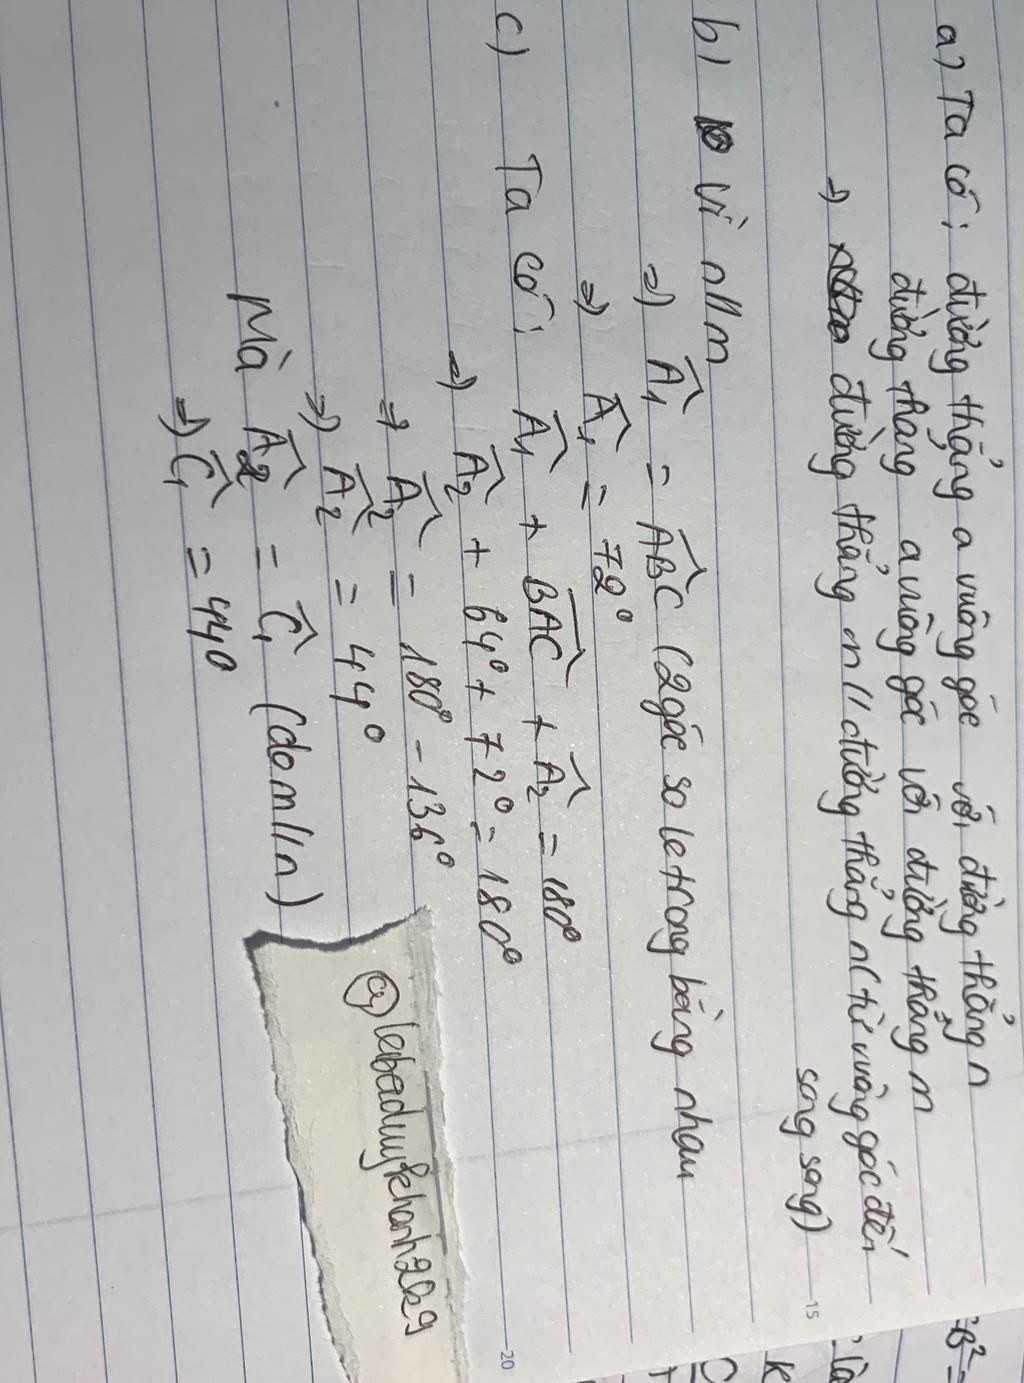 a) Ta có: đường thẳng a vuông góc với đường thẳng n
đường thẳng a vuông góc với đường thẳng m
=> đường thẳng m // đường thẳng n (từ vuông góc đến
song song)
15
b) Vì n//m
=> Â₁ = ABC (2 góc so le trong bằng nhau
=> Â₁ = 72°
c) Ta có: Â₁ + BAC + Â₂ = 180°
=> Â₂ + 64° + 72° = 180°
20
=> Â₂ = 180° - 136°
=> Â₂ = 44°
Mà Â₂ = Ĉ₁ (do m//n)
=> Ĉ₁ = 44°
@lebaduykhanh2k9